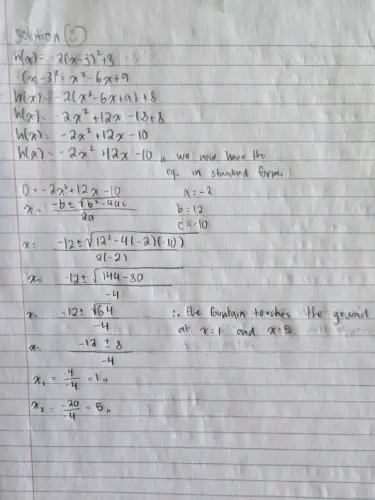 Solution (2)
h(x) = -2(x-3)² + 8
(x-3)² = x² - 6x + 9
h(x) = -2(x² - 6x + 9) + 8
h(x) = -2x² + 12x - 18 + 8
h(x) = -2x² + 12x - 10
h(x) = -2x² + 12x - 10 ,, we now have the
eq. in standard form.
0 = -2x² + 12x - 10 a = -2
x = (-b ± √(b² - 4ac))/2a b = 12
c = -10
x = (-12 ± √(12² - 4(-2)(-10)))/2(-2)
x = (-12 ± √(144 - 80))/-4
x = (-12 ± √64)/-4 ∴ the fountain touches the ground
at x = 1 and x = 5
x = (-12 ± 8)/-4
x₁ = -4/-4 = 1,,
x₂ = -20/-4 = 5,,